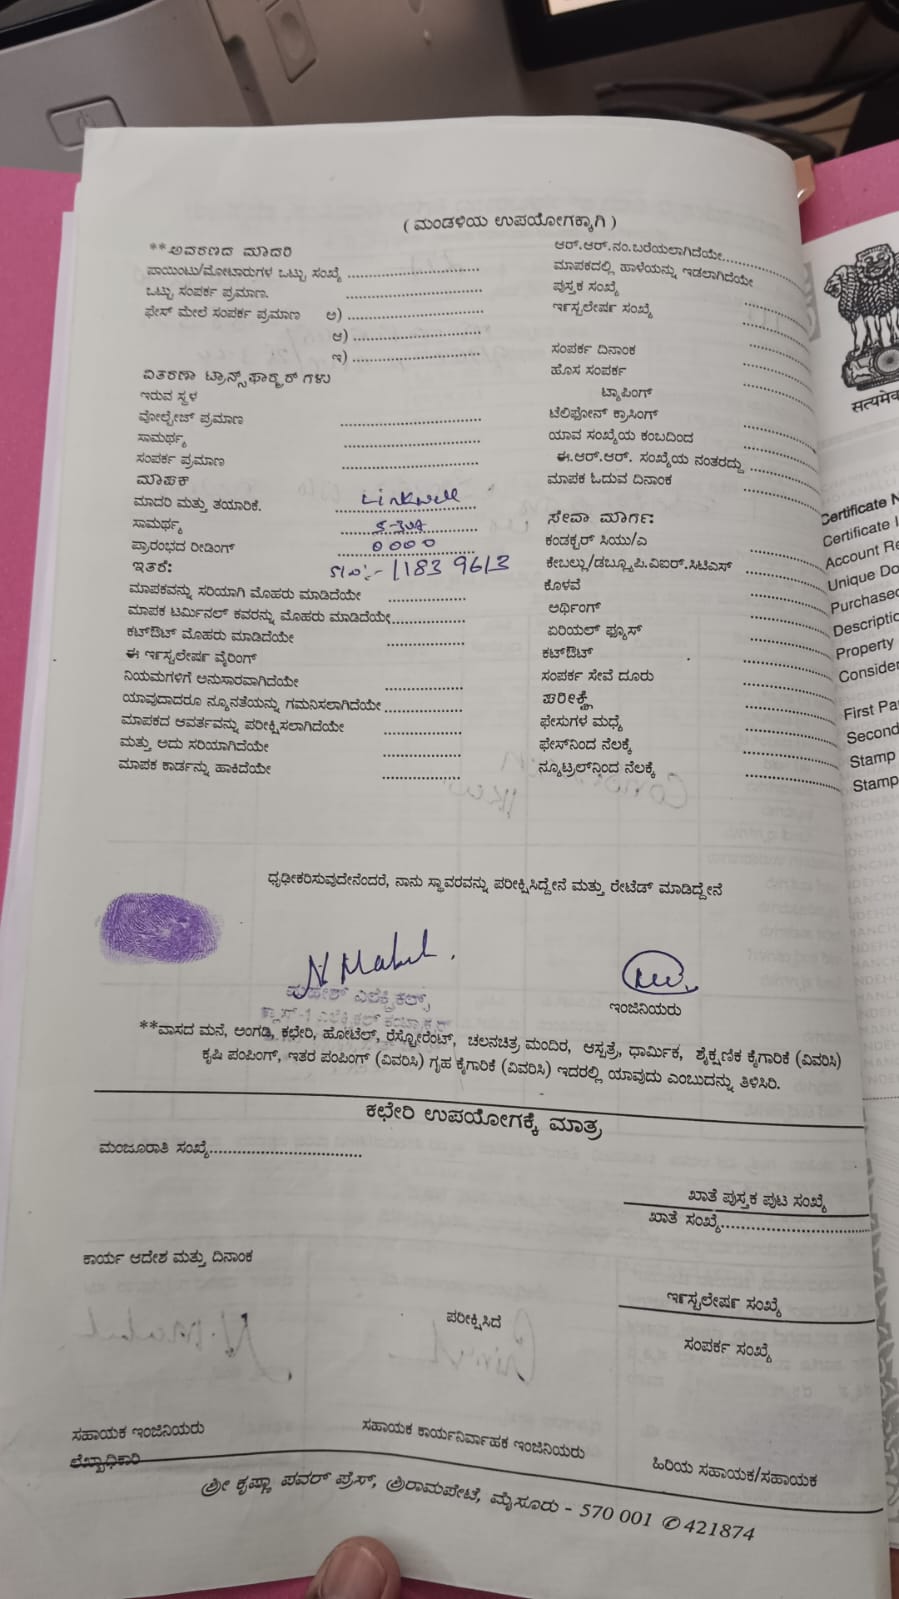 ( ಮಂಡಳಿಯ ಉಪಯೋಗಕ್ಕಾಗಿ )
**ಆವರಣದ ಮಾದರಿ
ಪಾಯಿಂಟು/ಮೋಟಾರುಗಳ ಒಟ್ಟು ಸಂಖ್ಯೆ ..............................
ಒಟ್ಟು ಸಂಪರ್ಕ ಪ್ರಮಾಣ. ..............................
ಫೇಸ್ ಮೇಲೆ ಸಂಪರ್ಕ ಪ್ರಮಾಣ ಅ) ..............................
ಆ) ..............................
ಇ) ..............................
ವಿತರಣಾ ಟ್ರಾನ್ಸ್‌ಫಾರ್‍ಮರ್ ಗಳು
ಇರುವ ಸ್ಥಳ
ವೋಲ್ಟೇಜ್ ಪ್ರಮಾಣ ..............................
ಸಾಮರ್ಥ್ಯ ..............................
ಸಂಪರ್ಕ ಪ್ರಮಾಣ ..............................
ಮಾಪಕ
ಮಾದರಿ ಮತ್ತು ತಯಾರಿಕೆ. Linkwell
ಸಾಮರ್ಥ್ಯ 5-30A
ಪ್ರಾರಂಭದ ರೀಡಿಂಗ್ 0000
ಇತರೆ: Slno:- 11839613
ಮಾಪಕವನ್ನು ಸರಿಯಾಗಿ ಮೊಹರು ಮಾಡಿದೆಯೇ ....................
ಮಾಪಕ ಟರ್ಮಿನಲ್ ಕವರನ್ನು ಮೊಹರು ಮಾಡಿದೆಯೇ....................
ಕಟ್‌ಔಟ್ ಮೊಹರು ಮಾಡಿದೆಯೇ ....................
ಈ ಇನ್ಸ್ಟಲೇಷನ್ ವೈರಿಂಗ್
ನಿಯಮಗಳಿಗೆ ಅನುಸಾರವಾಗಿದೆಯೇ ....................
ಯಾವುದಾದರೂ ನ್ಯೂನತೆಯನ್ನು ಗಮನಿಸಲಾಗಿದೆಯೇ ....................
ಮಾಪಕದ ಆವರ್ತವನ್ನು ಪರೀಕ್ಷಿಸಲಾಗಿದೆಯೇ ....................
ಮತ್ತು ಅದು ಸರಿಯಾಗಿದೆಯೇ ....................
ಮಾಪಕ ಕಾರ್ಡನ್ನು ಹಾಕಿದೆಯೇ ....................
ಆರ್.ಆರ್.ನಂ.ಬರೆಯಲಾಗಿದೆಯೇ....................
ಮಾಪಕದಲ್ಲಿ ಹಾಳೆಯನ್ನು ಇಡಲಾಗಿದೆಯೇ
ಪುಸ್ತಕ ಸಂಖ್ಯೆ ....................
ಇನ್ಸ್ಟಲೇಷನ್ ಸಂಖ್ಯೆ ....................
ಸಂಪರ್ಕ ದಿನಾಂಕ ....................
ಹೊಸ ಸಂಪರ್ಕ ....................
ಟ್ಯಾಪಿಂಗ್ ....................
ಟೆಲಿಫೋನ್ ಕ್ರಾಸಿಂಗ್ ....................
ಯಾವ ಸಂಖ್ಯೆಯ ಕಂಬದಿಂದ ....................
ಈ.ಆರ್.ಆರ್. ಸಂಖ್ಯೆಯ ನಂತರದ್ದು ....................
ಮಾಪಕ ಓದುವ ದಿನಾಂಕ ....................
ಸೇವಾ ಮಾರ್ಗ:
ಕಂಡಕ್ಟರ್ ಸಿಯು/ಎ ....................
ಕೇಬಲ್ಲು/ಡಬ್ಲ್ಯೂಪಿ.ವಿಐಆರ್.ಸಿಟಿಎಸ್ ....................
ಕೊಳವೆ ....................
ಅರ್ಥಿಂಗ್ ....................
ಏರಿಯಲ್ ಫ್ಯೂಸ್ ....................
ಕಟ್‌ಔಟ್ ....................
ಸಂಪರ್ಕ ಸೇವೆ ದೂರು ....................
ಪರೀಕ್ಷೆ
ಫೇಸುಗಳ ಮಧ್ಯೆ ....................
ಫೇಸ್‌ನಿಂದ ನೆಲಕ್ಕೆ ....................
ನ್ಯೂಟ್ರಲ್‌ನಿಂದ ನೆಲಕ್ಕೆ ....................
ಧೃಢೀಕರಿಸುವುದೇನೆಂದರೆ, ನಾನು ಸ್ಥಾವರವನ್ನು ಪರೀಕ್ಷಿಸಿದ್ದೇನೆ ಮತ್ತು ರೇಟೆಡ್ ಮಾಡಿದ್ದೇನೆ
ಎಲೆಕ್ಟ್ರಿಕಲ್ಸ್,
ಕ್ಲಾಸ್-1 ಎಲೆಕ್ಟ್ರಿಕಲ್
ಇಂಜಿನಿಯರು
**ವಾಸದ ಮನೆ, ಅಂಗಡಿ, ಕಛೇರಿ, ಹೋಟೆಲ್, ರೆಸ್ಟೋರೆಂಟ್, ಚಲನಚಿತ್ರ ಮಂದಿರ, ಆಸ್ಪತ್ರೆ, ಧಾರ್ಮಿಕ, ಶೈಕ್ಷಣಿಕ ಕೈಗಾರಿಕೆ (ವಿವರಿಸಿ)
ಕೃಷಿ ಪಂಪಿಂಗ್, ಇತರ ಪಂಪಿಂಗ್ (ವಿವರಿಸಿ) ಗೃಹ ಕೈಗಾರಿಕೆ (ವಿವರಿಸಿ) ಇದರಲ್ಲಿ ಯಾವುದು ಎಂಬುದನ್ನು ತಿಳಿಸಿರಿ.
ಕಛೇರಿ ಉಪಯೋಗಕ್ಕೆ ಮಾತ್ರ
ಮಂಜೂರಾತಿ ಸಂಖ್ಯೆ..............................
ಖಾತೆ ಪುಸ್ತಕ ಪುಟ ಸಂಖ್ಯೆ
ಖಾತೆ ಸಂಖ್ಯೆ..............................
ಕಾರ್ಯ ಆದೇಶ ಮತ್ತು ದಿನಾಂಕ
ಪರೀಕ್ಷಿಸಿದ
ಇನ್ಸ್ಟಲೇಷನ್ ಸಂಖ್ಯೆ
ಸಂಪರ್ಕ ಸಂಖ್ಯೆ
ಸಹಾಯಕ ಇಂಜಿನಿಯರು
ಲೆಖ್ಖಾಧಿಕಾರಿ
ಸಹಾಯಕ ಕಾರ್ಯನಿರ್ವಾಹಕ ಇಂಜಿನಿಯರು
ಹಿರಿಯ ಸಹಾಯಕ/ಸಹಾಯಕ
ಶ್ರೀ ಕೃಷ್ಣಾ ಪವರ್ ಪ್ರೆಸ್, ಶ್ರೀರಾಮಪೇಟೆ, ಮೈಸೂರು - 570 001 ✆ 421874
Certificate
Certificate
Account
Unique
Purchased
Property
First
Second
Stamp
Stamp